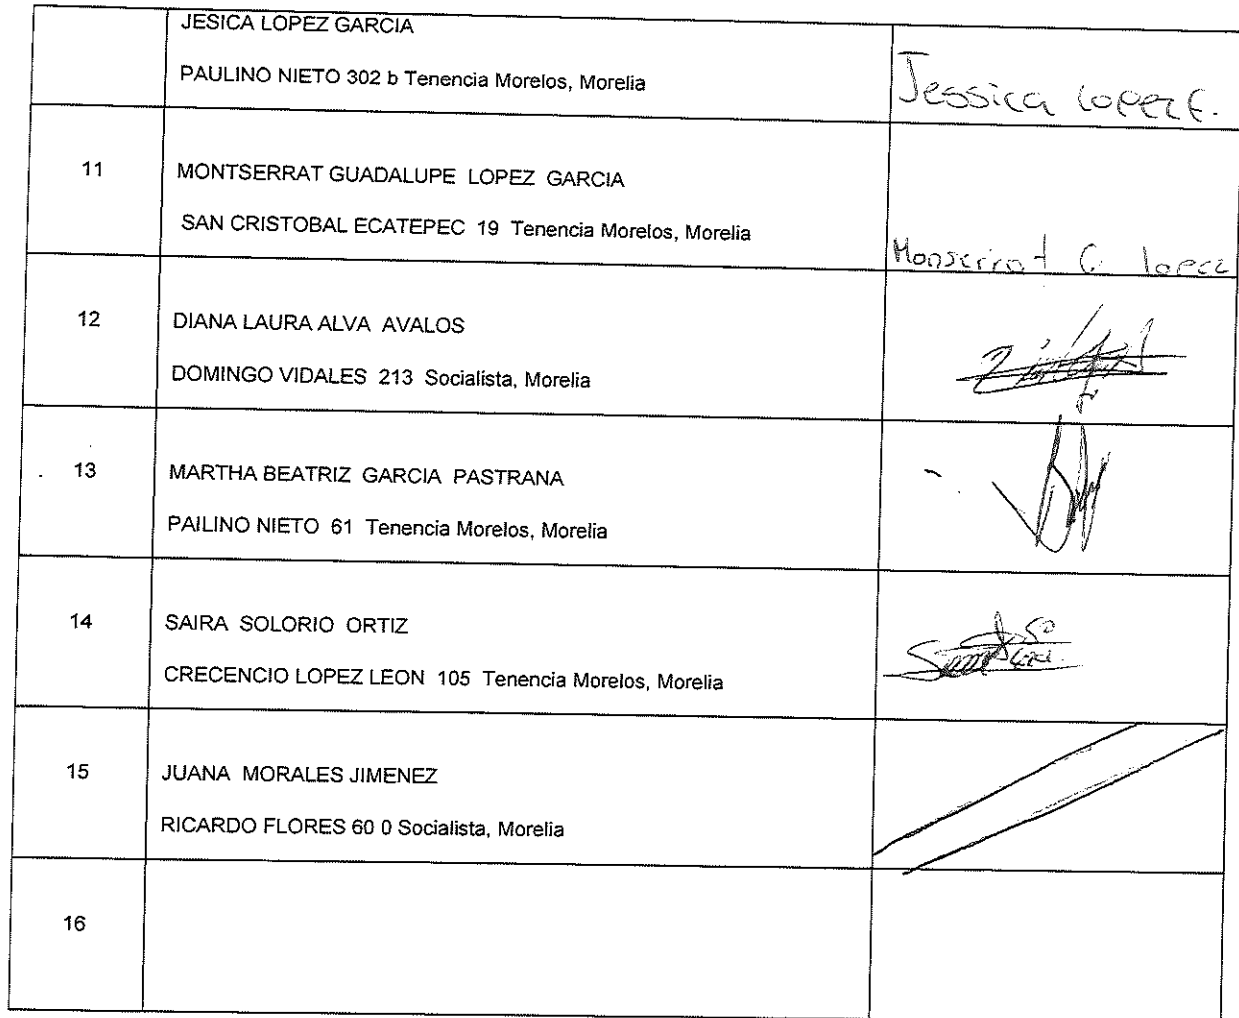 JESICA LOPEZ GARCIA
PAULINO NIETO 302 b Tenencia Morelos, Morelia
Jessica Lopez G.
11
MONTSERRAT GUADALUPE LOPEZ GARCIA
SAN CRISTOBAL ECATEPEC 19 Tenencia Morelos, Morelia
Monserrat G. lopez
12
DIANA LAURA ALVA AVALOS
DOMINGO VIDALES 213 Socialista, Morelia
13
MARTHA BEATRIZ GARCIA PASTRANA
PAILINO NIETO 61 Tenencia Morelos, Morelia
14
SAIRA SOLORIO ORTIZ
CRECENCIO LOPEZ LEON 105 Tenencia Morelos, Morelia
15
JUANA MORALES JIMENEZ
RICARDO FLORES 60 0 Socialista, Morelia
16